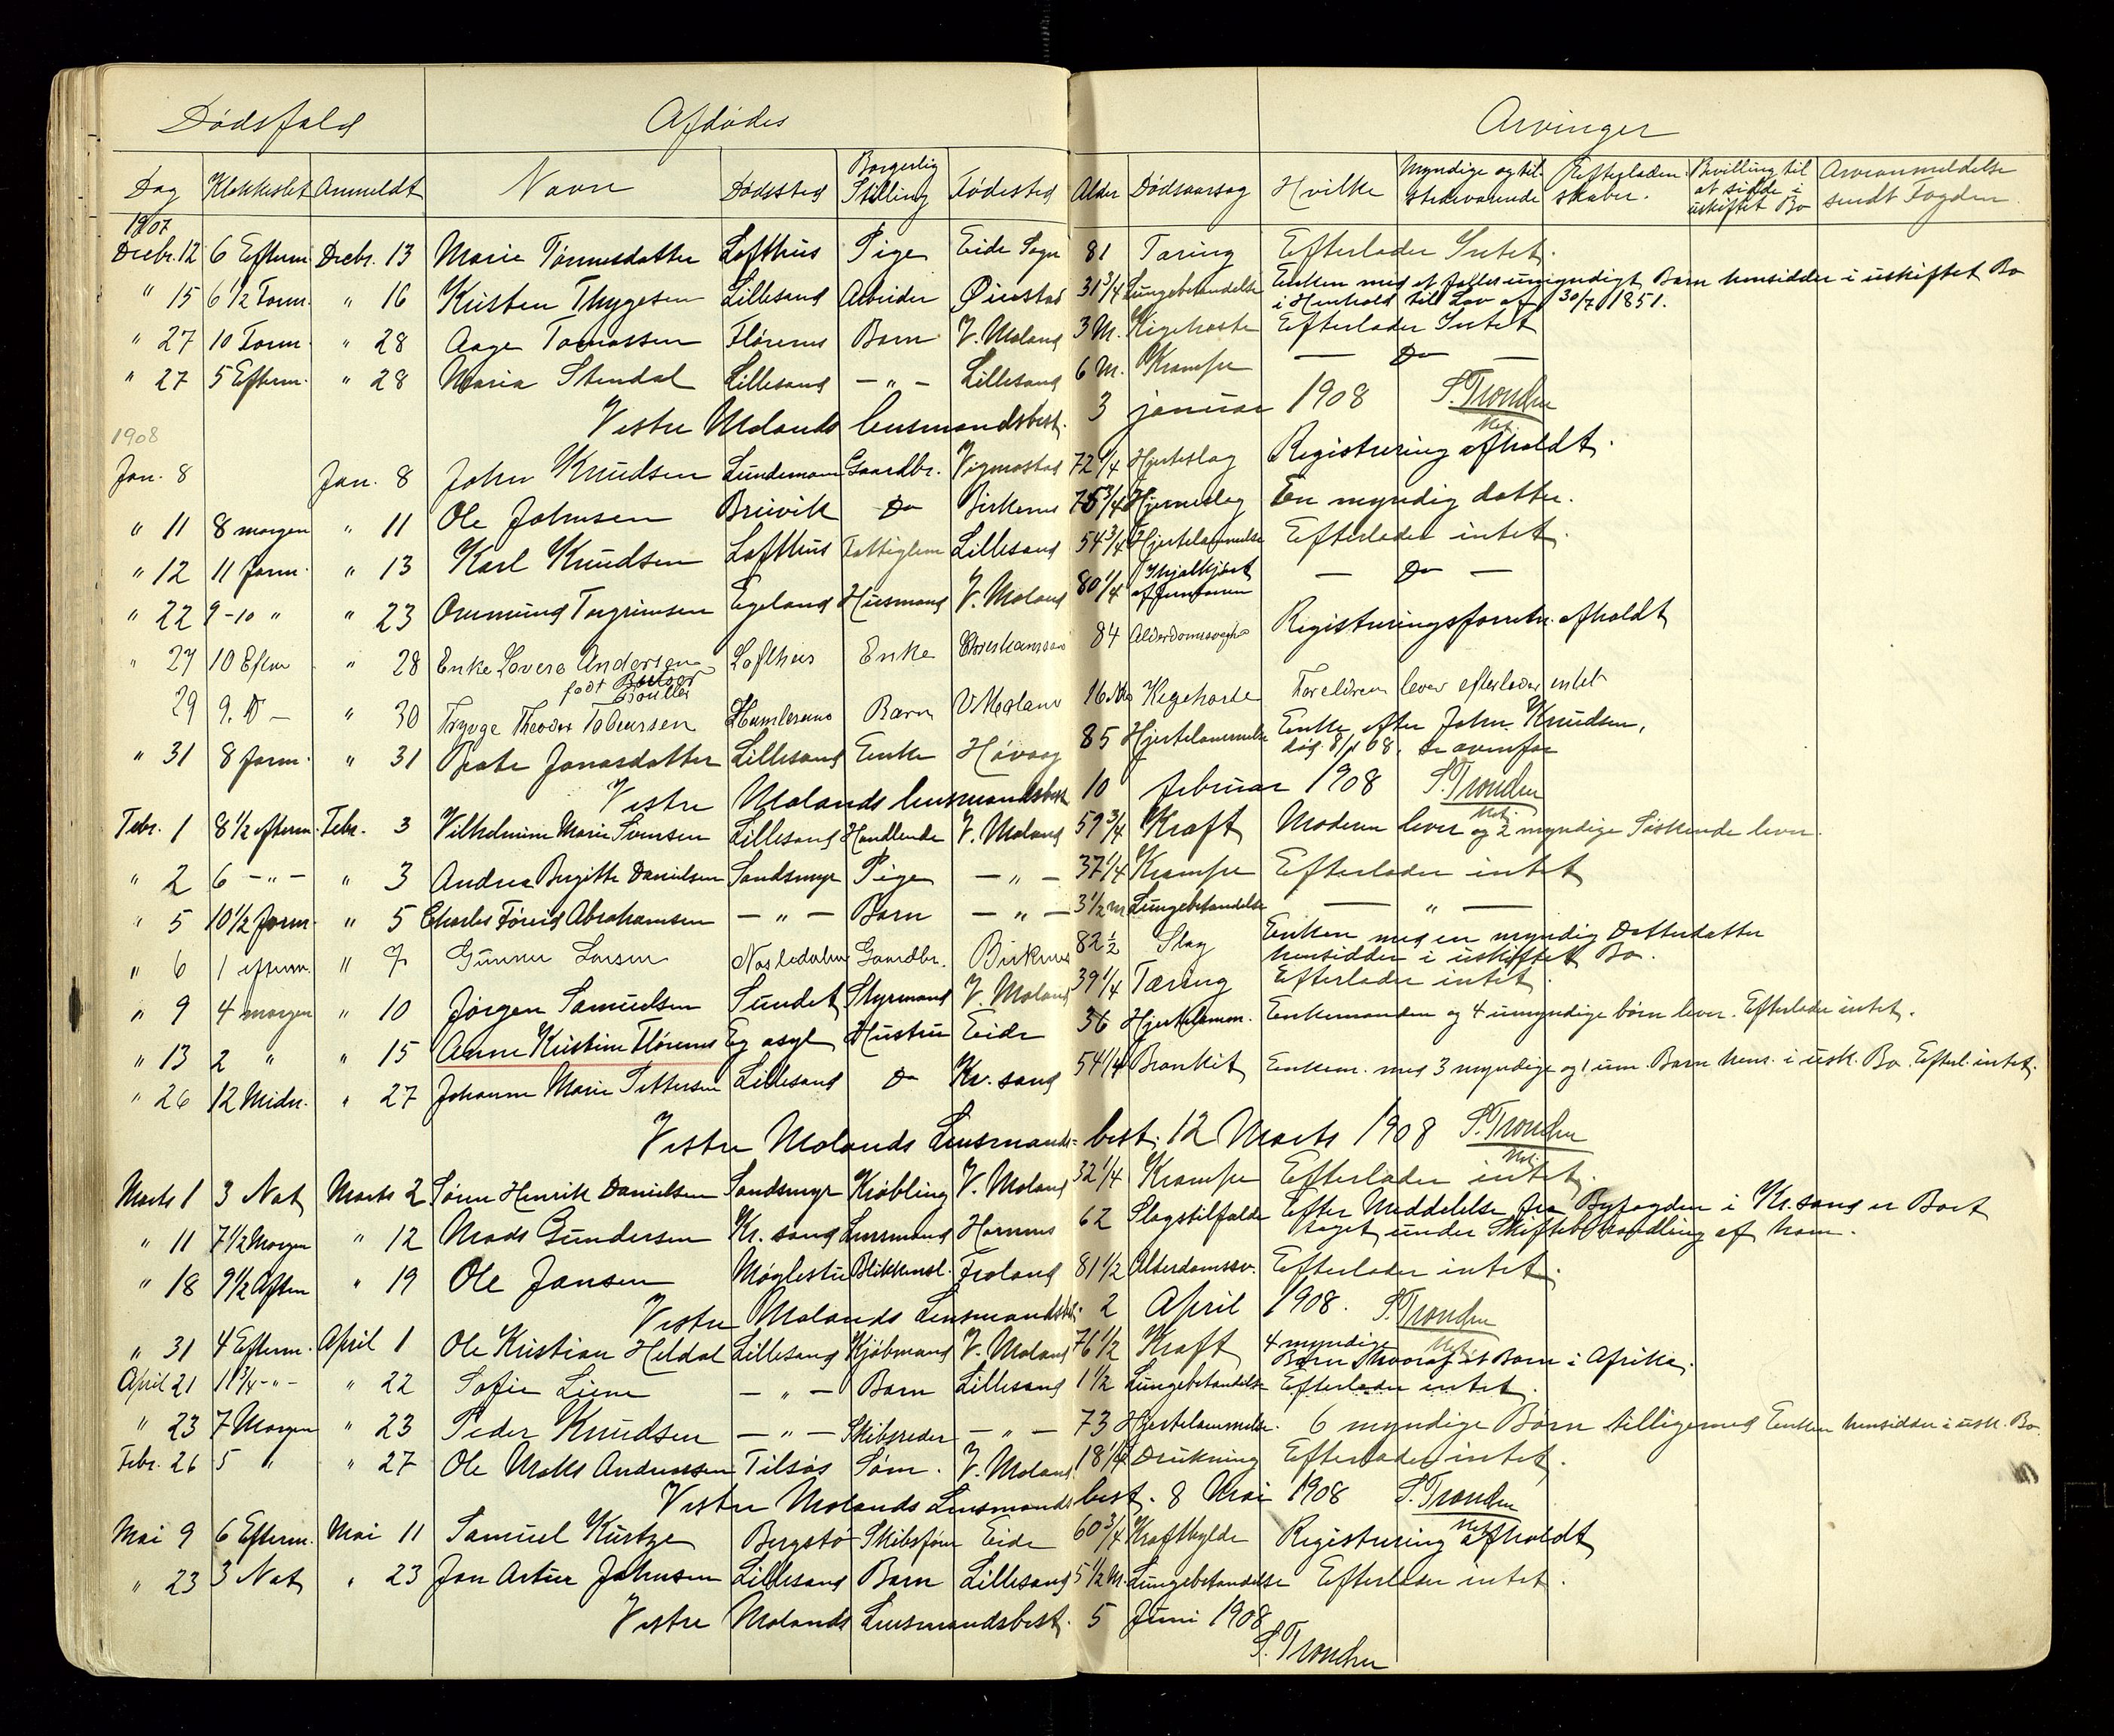 Dødsfald Afdødes Arvinger
Dag Klokkeslet Anmeldt Navn Dødssted Borgerlig Stilling Fødested Alder Dødsaarsag Hvilke Myndige og tilstedeværende Efterladenskaber. Bevilling til at sidde i uskiftet Bo Arveanmeldelse sendt Fogden
1907
Decbr. 12 6 Efterm. Decbr. 13 Marie Tønnesdatter Lofthus Pige Eide Sogn 81 Tæring Efterlader Intet.
" 15 6 1/2 Form. " 16 Kristen Thygesen Lillesand Arbeider Øiestad 31 3/4 Lungebetændelse Enken med et fælles umyndigt Barn hensidder i uskiftet Bo
i Henhold til Lov af 30/7 1851.
" 27 10 Form. " 28 Aage Tomassen Flørenes Barn V. Moland 3 M. Kighoste Efterlader Intet
" 27 5 Efterm. " 28 Maria Stendal Lillesand — " — Lillesand 6 M. Krampe — Do —
Vestre Molands lensmandsbest. 3 januar 1908 S. Tronden
1908
Jan. 8 Jan. 8 John Knudsen Lundemoen Gaardbr. Vigmostad 72 1/4 Hjerteslag Registrering afholdt.
" 11 8 morgen " 11 Ole Johnsen Breivik Do Birkenes 75 3/4 Hjerneslag En myndig datter.
" 12 11 form. " 13 Karl Knudsen Lofthus Fattiglem Lillesand 54 3/4 Hjertelammelse Efterlader intet.
" 22 9-10 " " 23 Ommund Torgrimsen Egeland Husmand V. Moland 80 1/4 Ihjelkjørt af Jernbanen — Do —
" 27 10 Efterm " 28 Enke Lovero Andersen Lofthus Enke Christianssand 84 Alderdomssvaghed Registreringsforretn. afholdt
født Boutler
29 9. D — " 30 Trygve Theodor Tobiassen Humlesund Barn V Moland 16 Mdr Kighoste Forældrene lever efterlader intet
" 31 8 form. " 31 Beate Jonasdatter Lillesand Enke Høvaag 85 Hjertelammelse Enke efter John Knudsen,
død 8/1 08. se ovenfor
Vestre Molands lensmandsbest 10 februar 1908 S. Tronden
Febr. 1 8 1/2 efterm. Febr. 3 Vilhelmine Marie Svensen Lillesand Handlende V. Moland 59 3/4 Kræft Moderen lever og 2 myndige Søskende lever.
" 2 6 — " — " 3 Andrea Birgitte Danielsen Sandsmyr Pige — " — 37 1/4 Krampe Efterlader intet
" 5 10 1/2 form. " 5 Charles Føreid Abrahamsen — " — Barn — " — 3 1/2 m Lungebetændelse — " —
" 6 1 efterm. " 7 Gunner Larsen Nosledalen Gaardbr. Birkenes 82 1/2 Slag Enken med en myndig Datterdatter
hensidder i uskiftet Bo.
" 9 4 morgen " 10 Jørgen Samuelsen Sundet Styrmand V. Moland 39 1/4 Tæring Efterlader intet.
" 13 2 " " 15 Anne Kristine Flørenes Eg asyl Hustru Eide 36 Hjertelamm. Enkemanden og 4 umyndige børn lever. Efterlader intet.
" 26 12 Midn. " 27 Johanne Marie Pettersen Lillesand Do Kr. sand 54 1/4 Bronkit Enkem. med 3 myndige og 1 um. Barn hens. i usk. Bo. Efterl. intet.
Vestre Molands Lensmands= best. 12 Marts 1908 S. Tronden
Marts 1 3 Nat Marts 2 Søren Henrik Danielsen Sandsmyr Krøbling V. Moland 32 1/4 Krampe Efterlader intet.
" 11 7 1/2 Morgen " 12 Mads Gundersen Kr. sand Lensmand Hornnes 62 Slagstilfælde Efter Meddelelse fra Byfogden i Kr. sand er Boet
taget under Skiftebehandling af ham.
" 18 9 1/2 Aften " 19 Ole Jansen Møglestu Blikkensl. Froland 81 1/2 Alderdomssv. Efterlader intet.
Vestre Molands Lensmandsbest. 2 April 1908. S. Tronden
" 31 4 Efterm. April 1 Ole Kristian Heldal Lillesand Kjøbmand V. Moland 76 1/2 Kræft 4 myndige
Børn hvoraf et Barn i Afrika.
April 21 1 3/4 — " — " 22 Sofie Liene — " — Barn Lillesand 1 1/2 Lungebetændelse Efterlader intet.
" 23 7 Morgen " 23 Peder Knudsen — " — Skibsreder — " — 73 Hjertelammelse. 6 myndige Børn tilligemed Enken hensidder i usk. Bo.
Febr. 26 5 " " 27 Ole Maks Andreassen Tilsøs Søm. V. Moland 18 1/4 Drukning Efterlader intet.
Vestre Molands Lensmands best. 8 Mai 1908 S. Tronden
Mai 9 6 Efterm. Mai 11 Samuel Kurtze Bergstø Skibsfører Eide 60 3/4 Kræftbylde Registrering afholdt
" 23 3 Nat " 23 Jon Artur Johnsen Lillesand Barn Lillesand 5 1/2 M. Lungebetændelse Efterlader intet.
Vestre Molands Lensmandsbest. 5 Juni 1908
S. Tronden